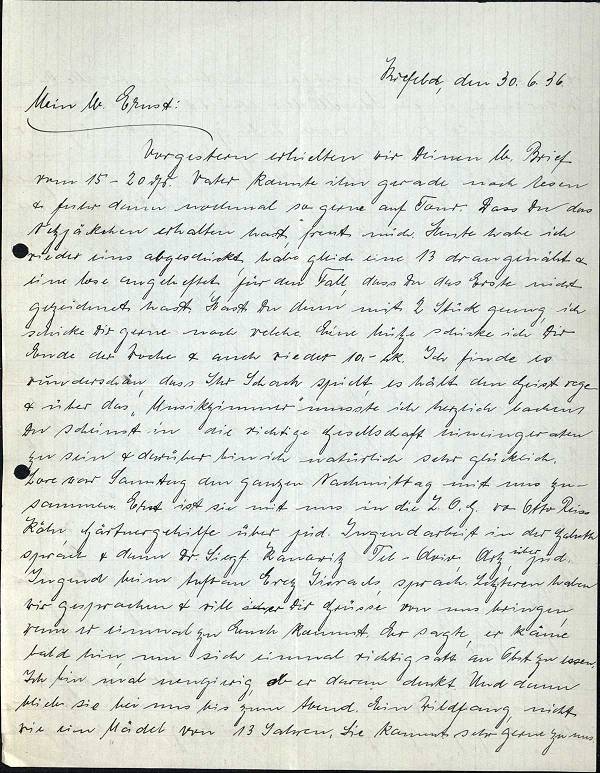 Krefeld, den 30.6.36.
Mein lb. Ernst:
Vorgestern erhielten wir Deinen lb. Brief
vom 15-20 ds. Vater konnte ihn gerade noch lesen
& fuhr dann nochmal so gerne auf Tour. Dass Du das
Netzjäckchen erhalten hast, freut mich. Heute habe ich
wieder eins abgeschickt, habe gleich eine 13 dr angenäht &
eine lose angeheftet für den Fall, dass Du das Erste nicht
gezeichnet hast. Hast Du denn mit 2 Stück genug, ich
schicke Dir gerne noch welche. Eine Mütze schicke ich Dir
Ende der Woche & auch wieder 10.- Mk. Ich finde es
wunderschön, dass Ihr Schach spielt, es hält den Geist rege
& über das "Musikzimmer" musste ich herzlich lachen.
Du scheinst in die richtige Gesellschaft hineingeraten
zu sein & darüber bin ich natürlich sehr glücklich.
Lore war Samstag den ganzen Nachmittag mit uns zu-
sammen. Erst ist sie mit uns in die Z.O.G. wo Otto Reiss
Köln, Gärtnergehilfe über jüd. Jugendarbeit in der Galuth
sprach & dann Dr Siegf. Kanowitz Tel-Aviv, Arzt, über jüd.
Jugend beim Aufbau Erez Jisraels, sprach. Letzteren haben
wir gesprochen & will Dir Grüsse von uns bringen,
wenn er einmal zu Euch kommt. Er sagte, er käme
bald hin, um sich einmal richtig satt an Obst zu essen.
Ich bin mal neugierig, ob er daran denkt. Und dann
blieb sie bei uns bis zum Abend. Ein Wildfang, nicht
wie ein Mädel von 13 Jahren. Sie kommt sehr gerne zu uns